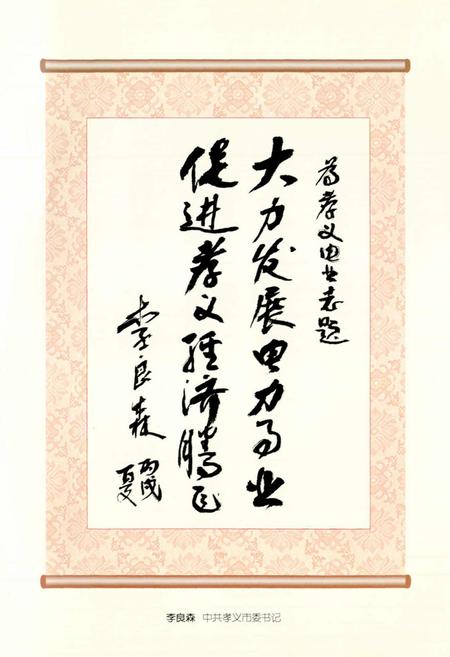 为孝义电业志题
大力发展电力事业
促进孝义经济腾飞
李良森
丙戌
夏
李良森 中共孝义市委书记